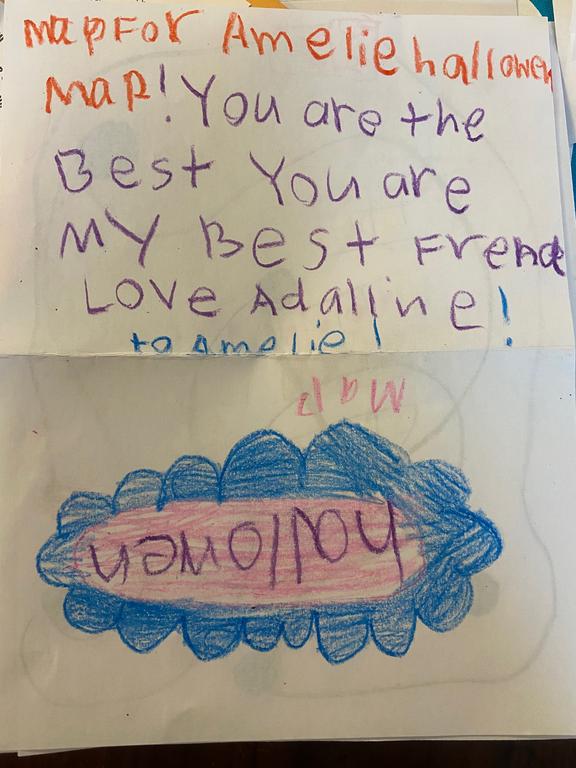 map For Amelie hallowen
Map! You are the
Best You are
MY Best Frend
LOVE Adalline!
to Amelie!
Map
hallowen